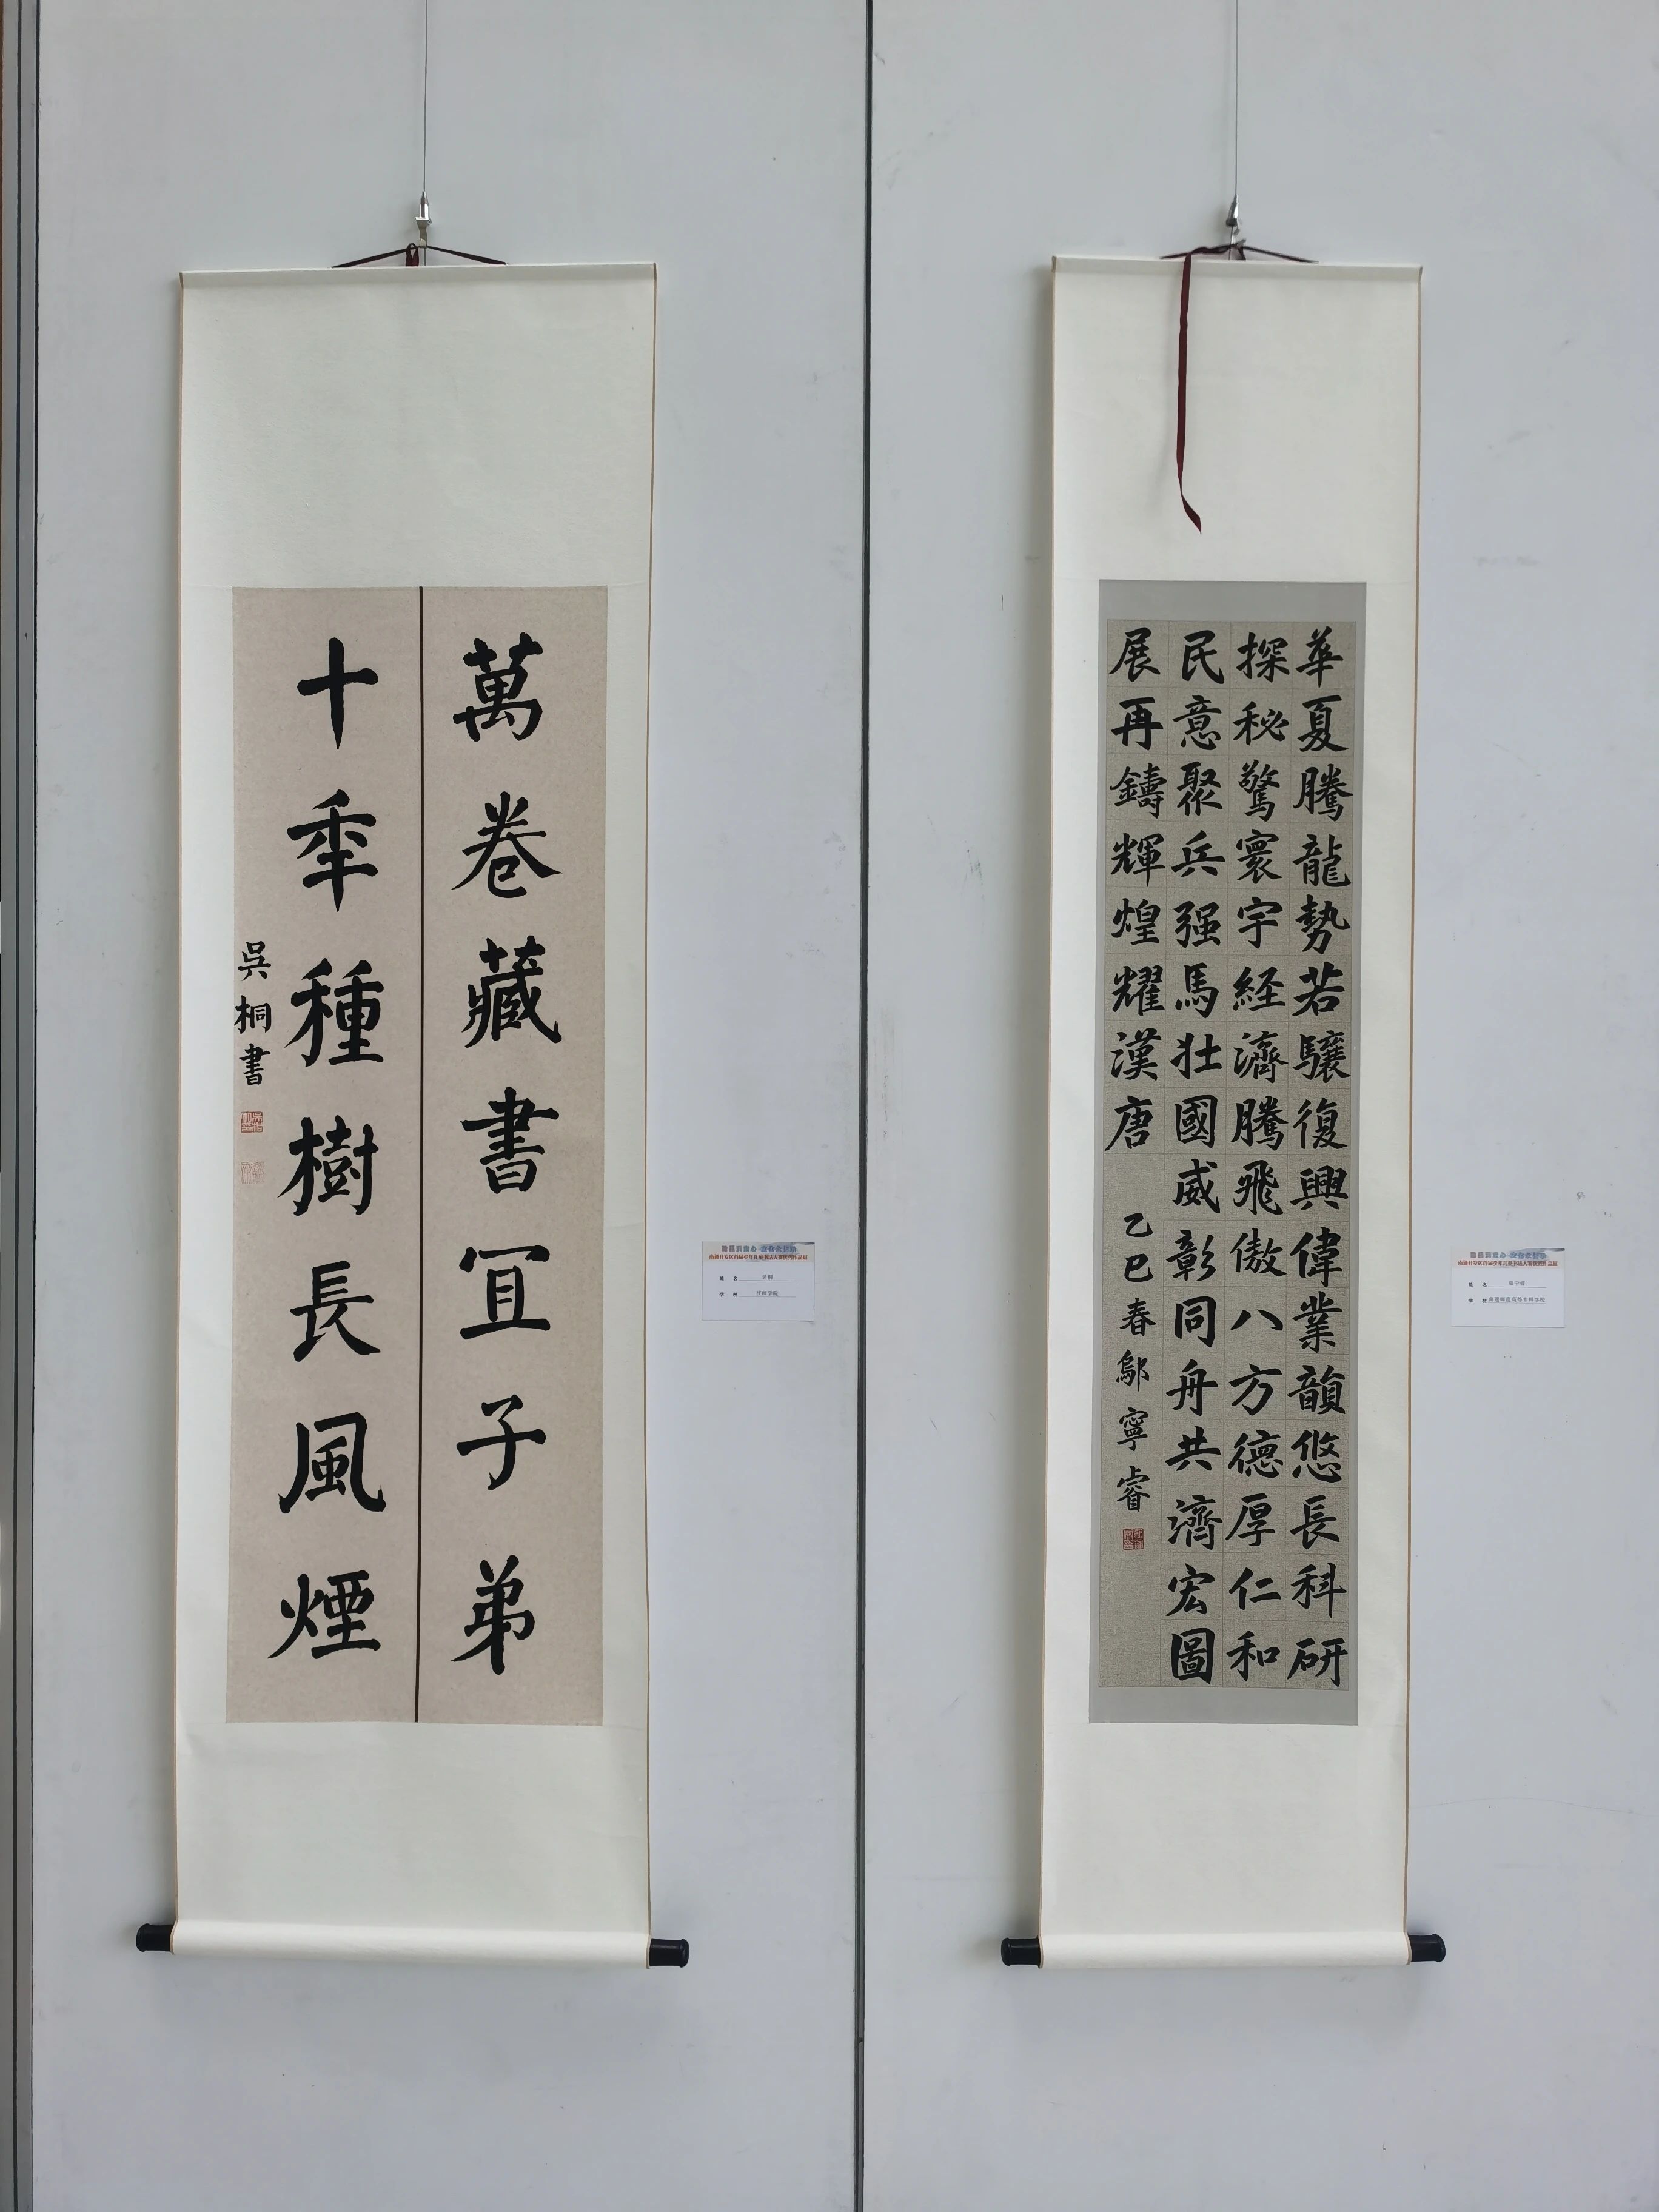 萬卷藏書冝子弟
十秊種樹長風煙
吳桐書
姓名 吴桐
学校
華夏騰龍勢若驤復興偉業韻悠長科研
探秘驚寰宇経濟騰飛傲八方德厚仁和
民意聚兵强馬壯國威彰同舟共濟宏圖
展再鑄輝煌耀漢唐
乙巳春鄔寧睿
姓名 邬宁睿
学校 高等专科学校